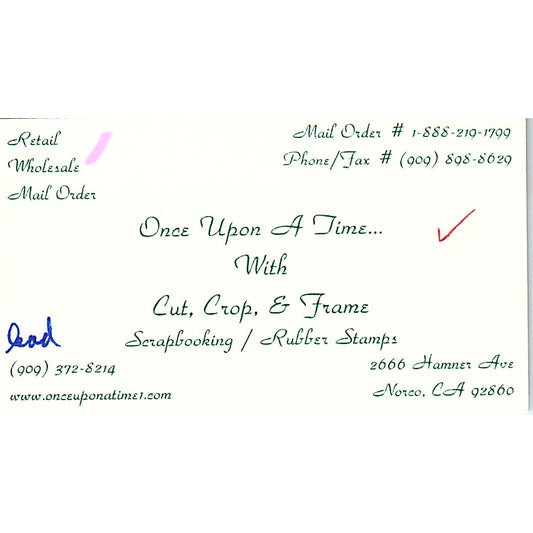 Retail
Wholesale
Mail Order
Mail Order # 1-888-219-1799
Phone/Fax # (909) 898-8629
Once Upon A Time...
With
Cut, Crop, & Frame
Scrapbooking / Rubber Stamps
lead
(909) 372-8214
www.onceuponatime1.com
2666 Hamner Ave
Norco, CA 92860